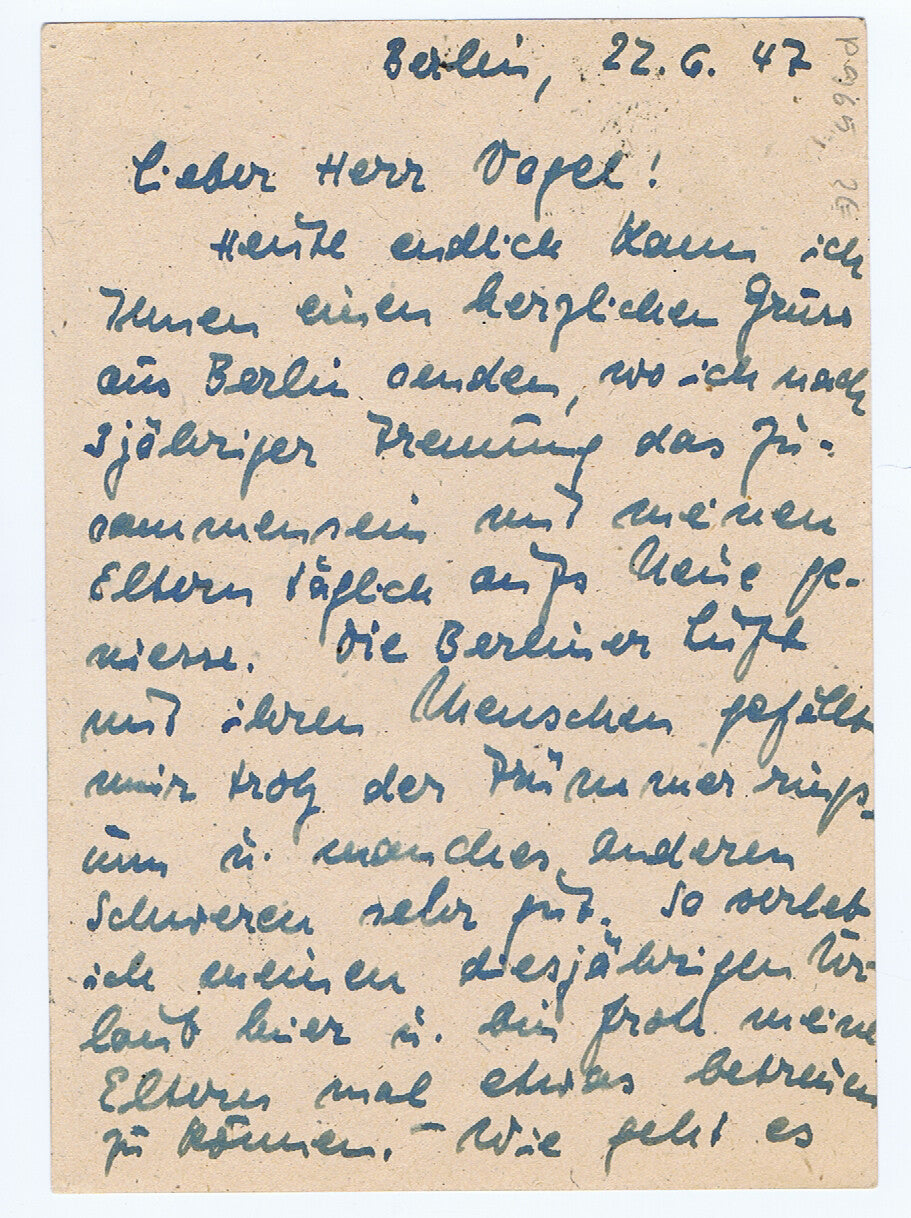 Berlin, 22. 6. 47
Lieber Herr Vogel!
Heute endlich kann ich
Ihnen einen herzlichen Gruss
aus Berlin senden, wo ich nach
3jähriger Trennung das Zu-
sammensein mit meinen
Eltern täglich aufs Neue ge-
niesse. Die Berliner Luft
mit ihren Menschen gefällt
mir trotz der Trümmer rings-
um u. manches anderen
Schweren sehr gut. So verleb
ich meinen diesjährigen Ur-
laub hier u. bin froh meine
Eltern mal etwas betreuen
zu können. – Wie geht es